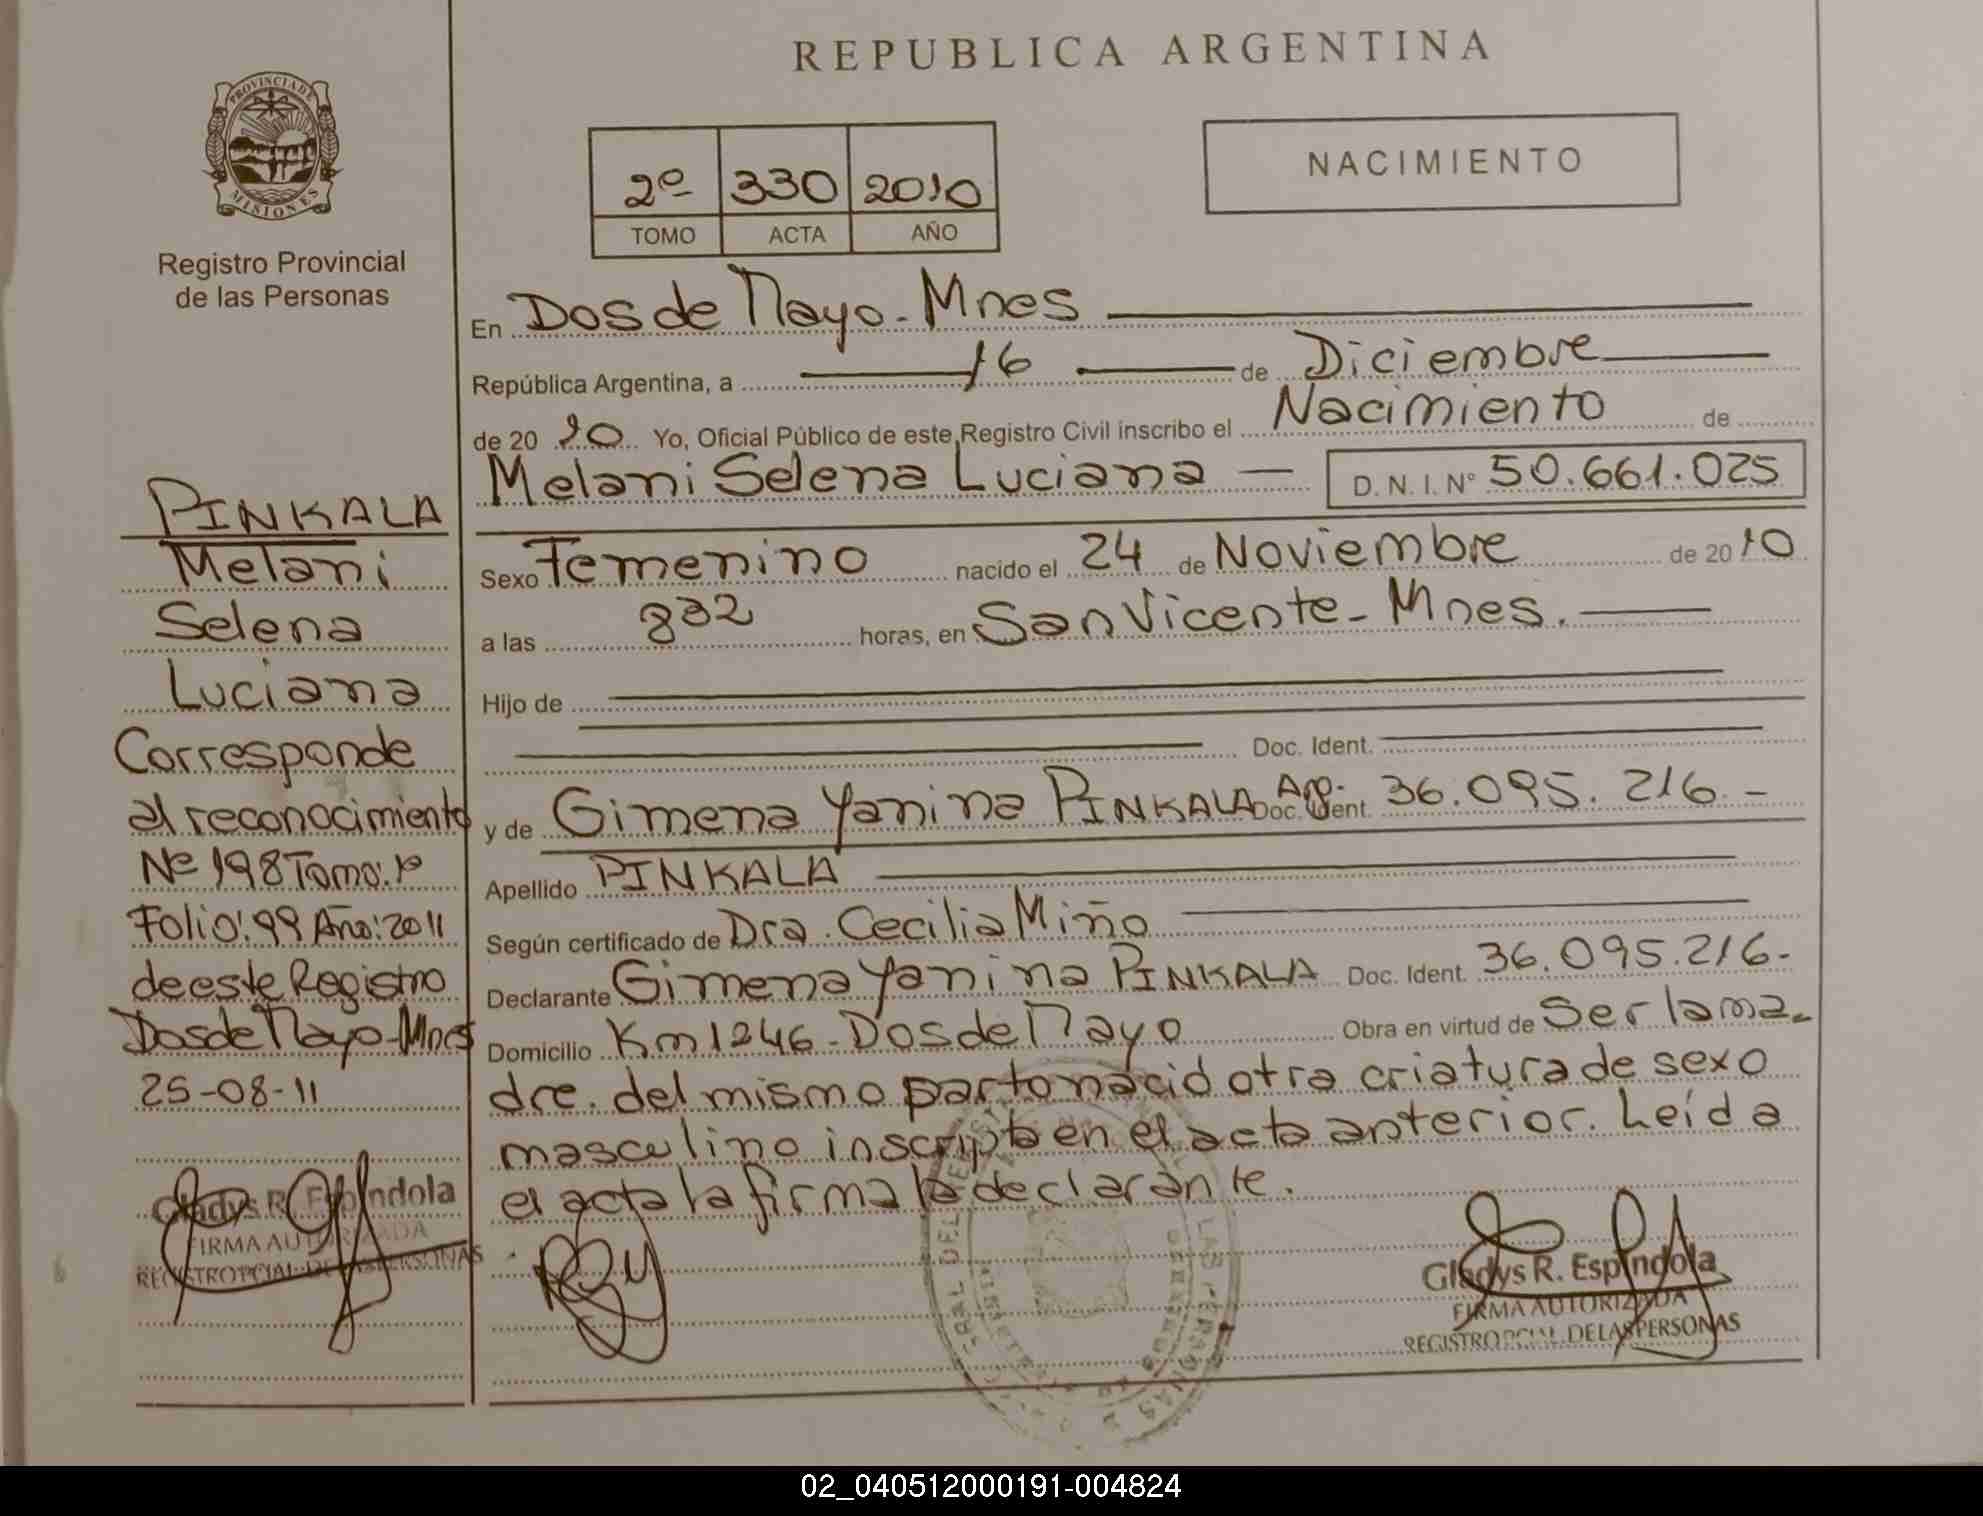 REPUBLICA ARGENTINA
PROVINCIA DE
MISIONES
Registro Provincial
de las Personas
2º 330 2010
TOMO ACTA AÑO
NACIMIENTO
En Dos de Mayo - Mnes
República Argentina, a 16 de Diciembre
de 20 10 Yo, Oficial Público de este Registro Civil inscribo el Nacimiento de
Melani Selena Luciana D. N. I. Nº 50.661.025
Sexo Femenino nacido el 24 de Noviembre de 2010
a las 832 horas, en San Vicente - Mnes.
Hijo de
Doc. Ident.
y de Gimena Yanina PINKALA Arg. Doc. Ident. 36.095.216.-
Apellido PINKALA
Según certificado de Dra. Cecilia Miño
Declarante Gimena Yanina PINKALA Doc. Ident. 36.095.216.-
Domicilio Km 1246 - Dos de Mayo Obra en virtud de Ser la ma-
dre. del mismo parto nació otra criatura de sexo
masculino inscripto en el acta anterior. Leída
el acta la firma la declarante.
PINKALA
Melani
Selena
Luciana
Corresponde
al reconocimiento
Nº 198 Tomo: 1º
Folio: 99 Año: 2011
de este Registro
Dos de Mayo - Mnes
25-08-11
Gladys R. Espindola
FIRMA AUTORIZADA
REGISTRO PCIAL. DE LAS PERSONAS
Gladys R. Espindola
FIRMA AUTORIZADA
REGISTRO PCIAL. DE LAS PERSONAS
02_040512000191-004824